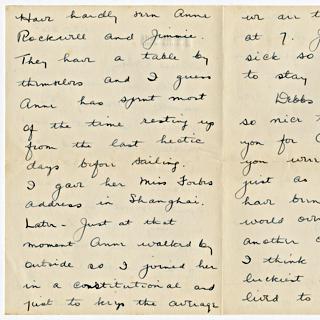 Have hardly seen Anne
Rockwell and Jimmie.
They have a table by
themselves and I guess
Anne has spent most
of the time resting up
from the last hectic
days before sailing.
I gave her Miss Forbes
address in Shanghai.
Later - Just at that
moment Anne walked by
outside so I joined her
in a constitutional and
just to keep the average
we are t
at 7. J
sick so
to stay
Debbs
so nice t
you for C
you wer
just as
have been
world over
another c
I think
luckiest
lived to